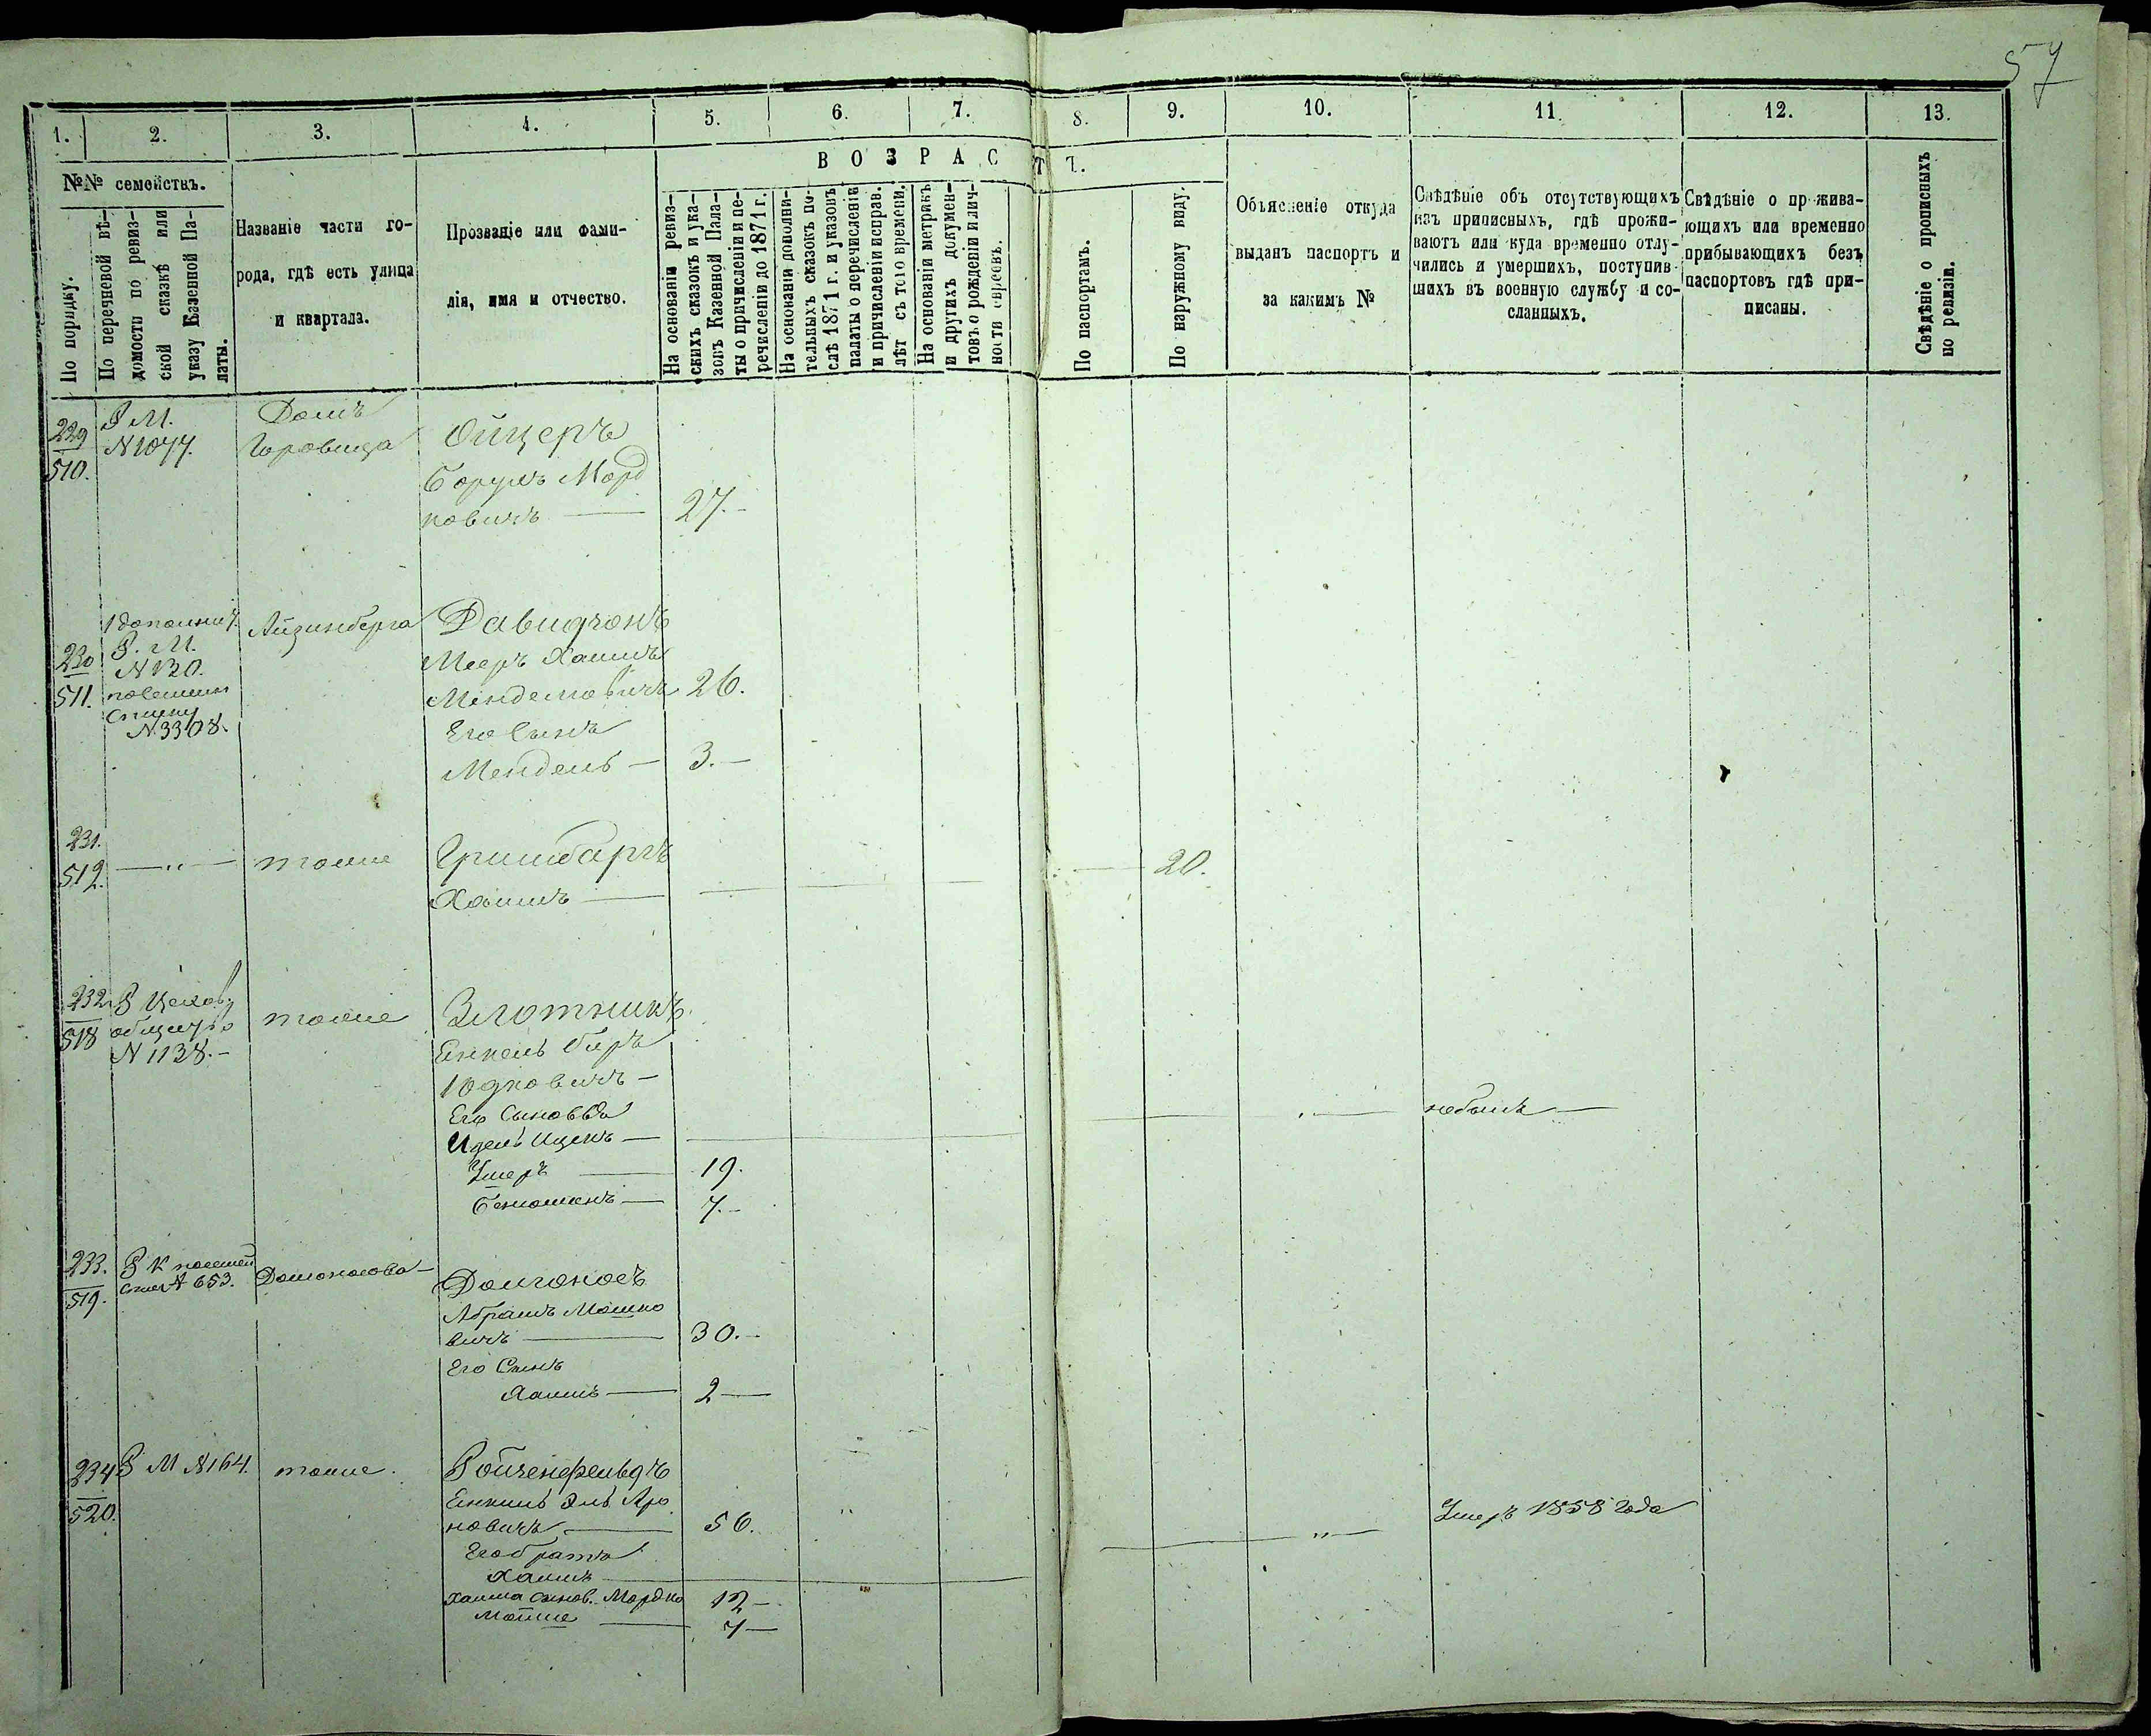 57
1.
2.
3.
4.
5.
6.
7.
8.
9.
10.
11.
12.
13.
№№ семействъ.
ВОЗРАСТЪ.
По порядку.
По перечневой вѣ-
домости по ревиз-
ской сказкѣ или
указу Казенной Па-
латы.
Названіе части го-
рода, гдѣ есть улица
и квартала.
Прозваніе или фами-
лія, имя и отчество.
На основаніи ревиз-
скихъ сказокъ и ука-
зовъ Казенной Пала-
ты о причисленіи и пе-
речисленіи до 1871 г.
На основаніи дополни-
тельныхъ сказокъ по-
слѣ 1871 г. и указовъ
палаты о перечисленіи
и причисленіи исправ.
лѣт съ того времени.
На основаніи метрикъ
и другихъ докумен-
товъ о рожденіи и лич-
ности евреевъ.
По паспортамъ.
По наружному виду.
Объясненіе откуда
выданъ паспортъ и
за какимъ №
Свѣдѣніе объ отсутствующихъ
изъ приписныхъ, гдѣ прожи-
ваютъ или куда временно отлу-
чились и умершихъ, поступив-
шихъ въ военную службу и со-
сланныхъ.
Свѣдѣніе о прожива-
ющихъ или временно
прибывающихъ безъ
паспортовъ гдѣ при-
писаны.
Свѣдѣніе о прописныхъ
по ревизіи.
229
510.
Р М.
N 1077.
Домъ
Горовица
Ойцеръ
Борухъ Морд
ковичъ — 27.-
230
511.
1 дополнит.
Р. М.
N 120.
посемейн
списку
N 3308.
Айзинберга
Давидчонъ
Мееръ Хаимъ
Менделовичъ 26.
Его Сынъ
Мендель — 3.—
231.
512.
— " —
тоже
Гринбаргъ
Хаимъ — 20.
232
518
Р Цехов.
общетво
N 1138.-
тоже
Злотникъ
Енкель Беръ
Юдковичъ —
Его Сыновья
Идель Ицекъ — небылъ —
Умеръ — 19.
Беньоменъ — 7.-
233.
519.
Р К посемей
спис N 653.
Долгоносова —
Долгоносъ
Абрамъ Мошко
вичъ — 30.-
Его Сынъ
Хаимъ — 2 —
234
520.
Р М N 164.
тоже.
Ройченфельдъ
Енкель Эль Аро
новичъ — 56. "
Его братъ
Хаимъ — " — Умеръ 1858 года
Хаима Сынов. Мордко 12 —
Мошше — 7 —